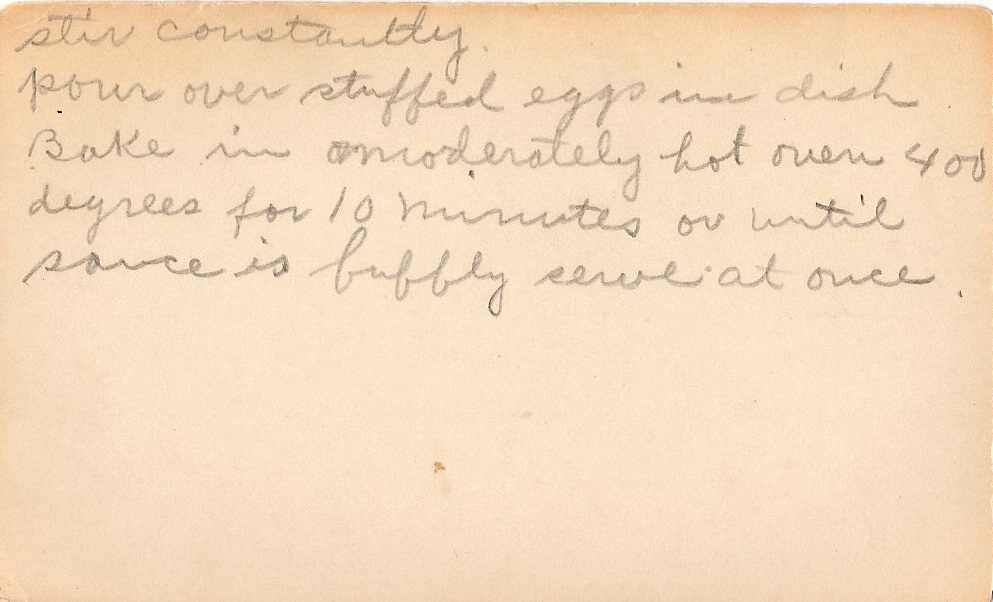 stir constantly.
pour over stuffed eggs in dish
Bake in a moderately hot oven 400
degrees for 10 minutes or until
sauce is bubbly serve at once.